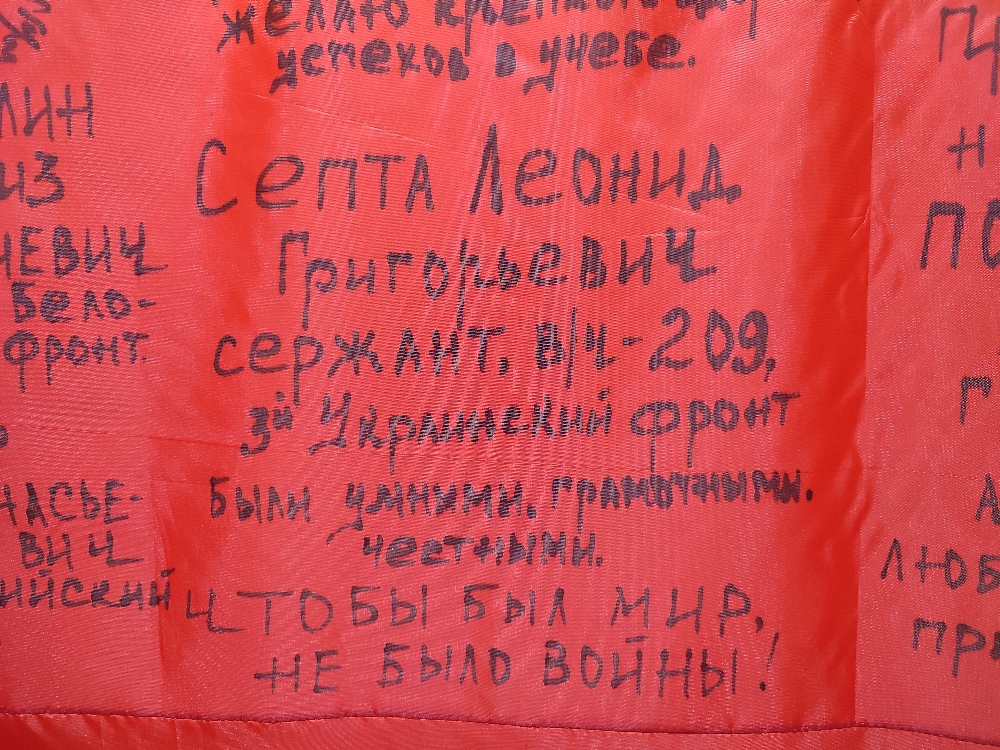 желаю
успехов в учебе.
Септа Леонид
Григорьевич
сержант, в/ч-209,
3й Украинский фронт
были умными, грамотными,
честными.
чтобы был мир,
не было войны!
лин
из
чевич
Бело-
фронт.
насье-
вич
ийский